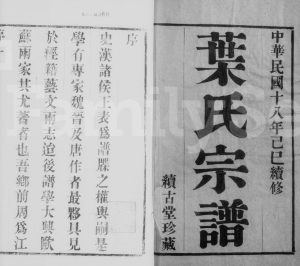 中華民國十八年己巳續修
葉氏宗譜
續古堂珍藏
序
史漢諸侯王表爲譜牒之權輿嗣是
學有專家魏晉及唐作者最夥具見
於經籍藝文兩志迨後譜學大興歐
蘇兩家其尤著者也吾鄉前周爲江